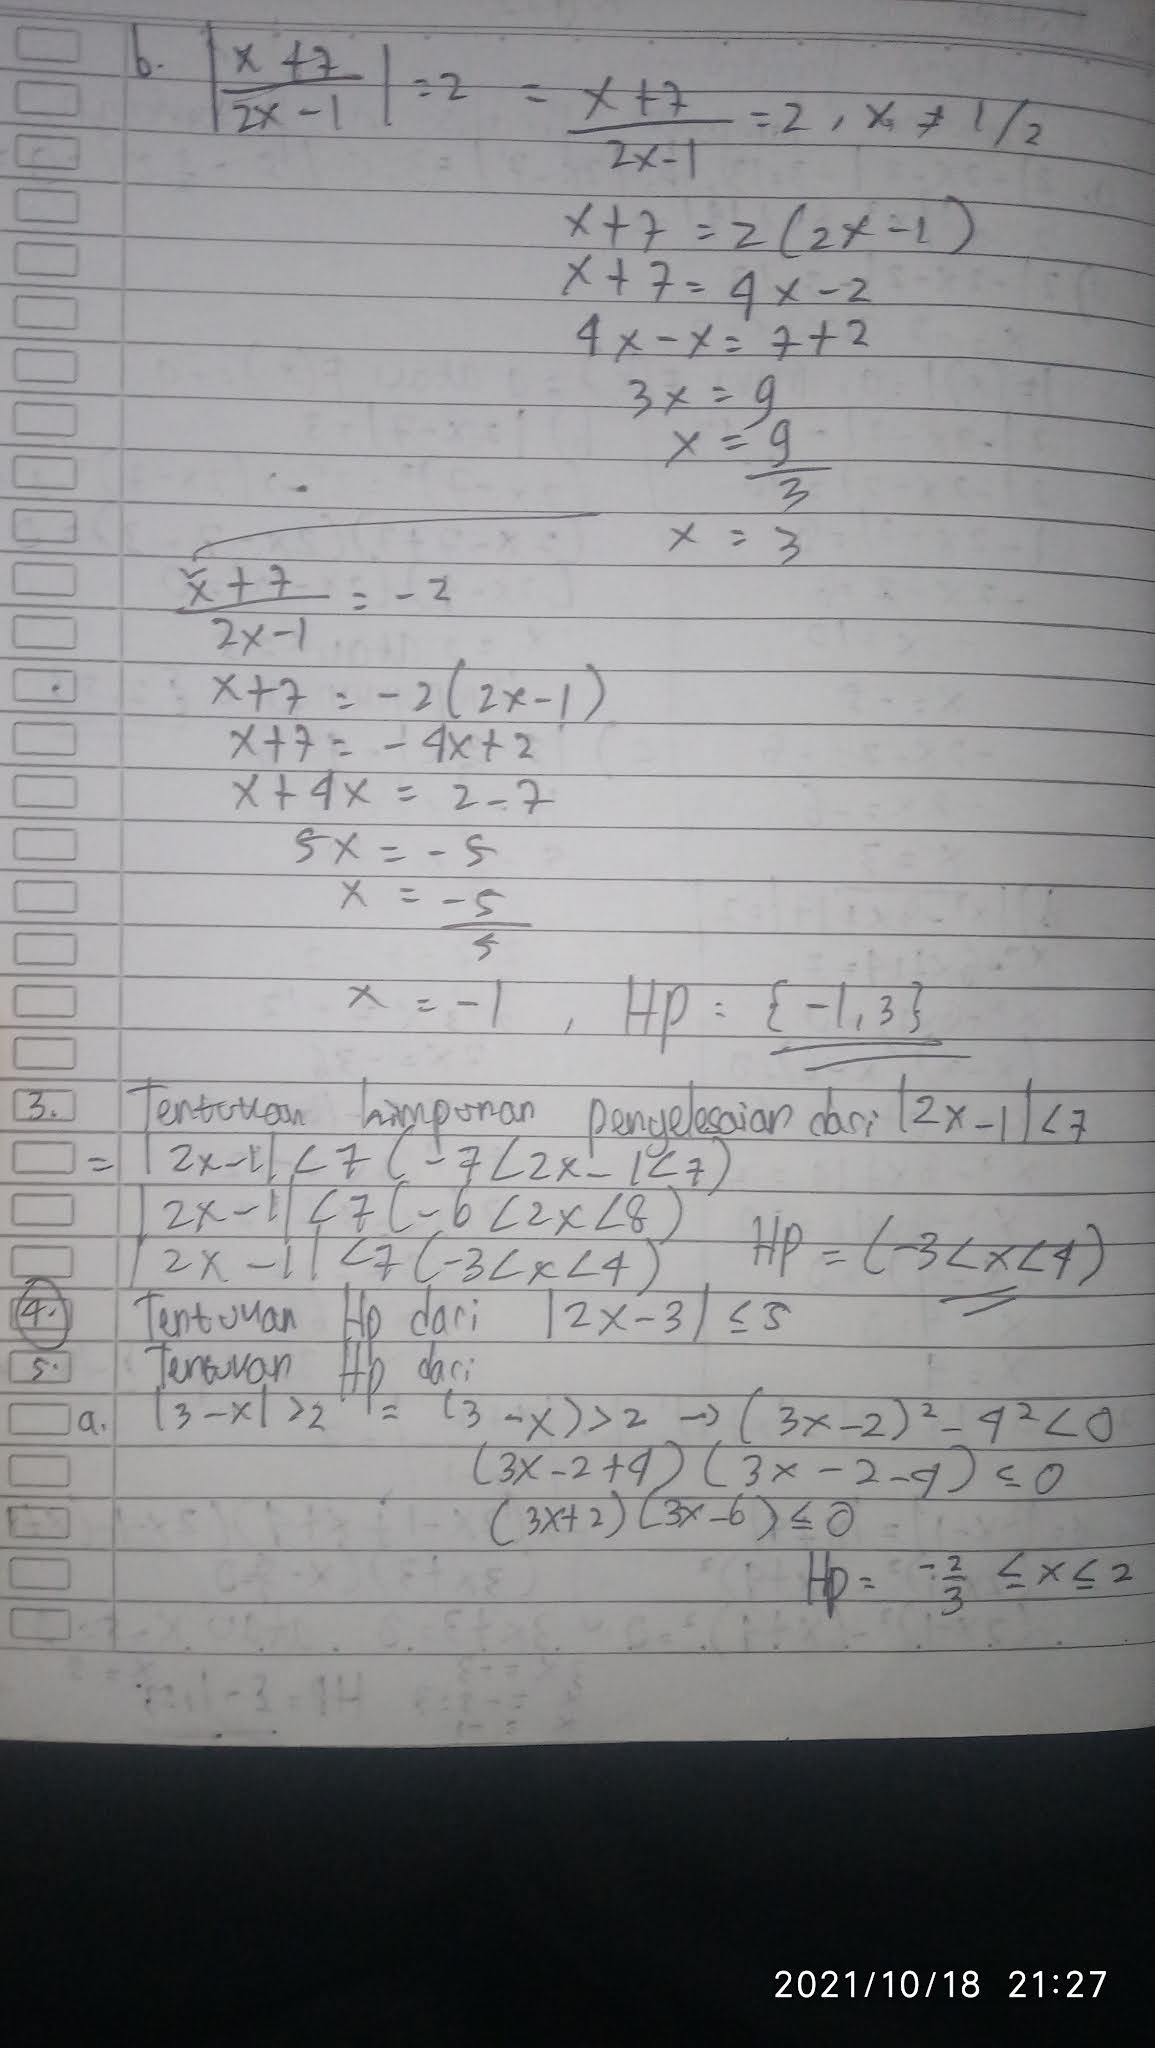 b. |x+7/2x-1| = 2 = x+7/2x-1 = 2, x ≠ 1/2
x+7 = 2(2x-1)
x+7 = 4x-2
4x-x = 7+2
3x = 9
x = 9/3
x = 3
x+7/2x-1 = -2
x+7 = -2(2x-1)
x+7 = -4x+2
x+4x = 2-7
5x = -5
x = -5/5
x = -1, Hp = {-1,3}
3. Tentukan himpunan penyelesaian dari |2x-1|<7
= |2x-1|<7 (-7<2x-1<7)
|2x-1|<7 (-6<2x<8)
|2x-1|<7 (-3<x<4) Hp = (-3<x<4)
4. Tentukan Hp dari |2x-3| ≤ 5
5. Tentukan Hp dari
a. |3-x|>2 = (3-x)>2 → (3x-2)²-4²<0
(3x-2+4)(3x-2-4) ≤ 0
(3x+2)(3x-6) ≤ 0
Hp = -2/3 ≤ x ≤ 2
2021/10/18 21:27